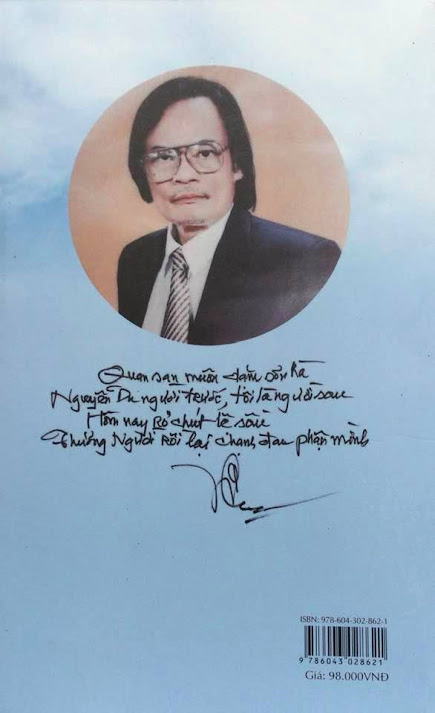 Quan san muôn dặm sơn hà
Nguyễn Du người trước, tôi là người sau
Hôm nay rỏ chút lệ sầu
Thương Người rồi lại chạnh đau phận mình
ISBN: 978-604-302-862-1
9 786043 028621
Giá: 98.000VNĐ